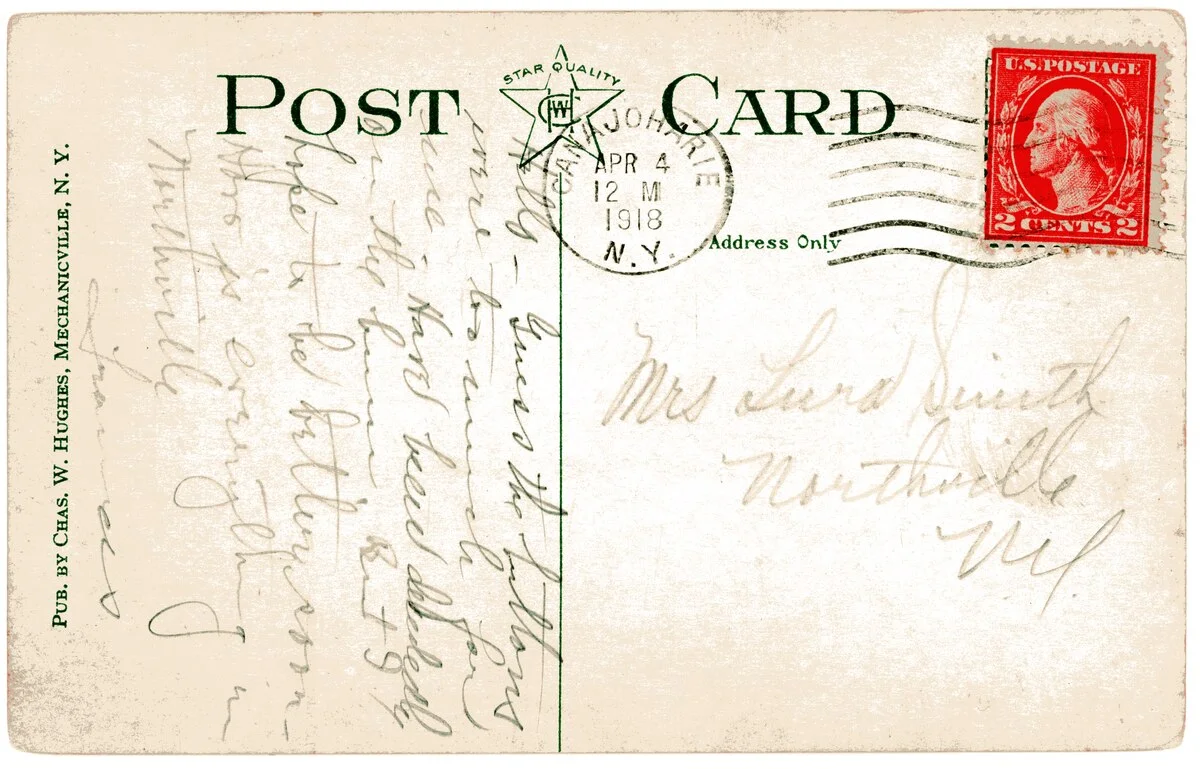 POST CARD
STAR QUALITY
CWH
CANAJOHARIE
APR 4
12 M
1918
N.Y.
U.S. POSTAGE
2 CENTS 2
Address Only
PUB. BY CHAS. W. HUGHES, MECHANICVILLE, N. Y.
Guess the
were to much for
me - Have been
on
hope to be better soon -
How is everything in
Northville
Mrs Smith
Northville
NY